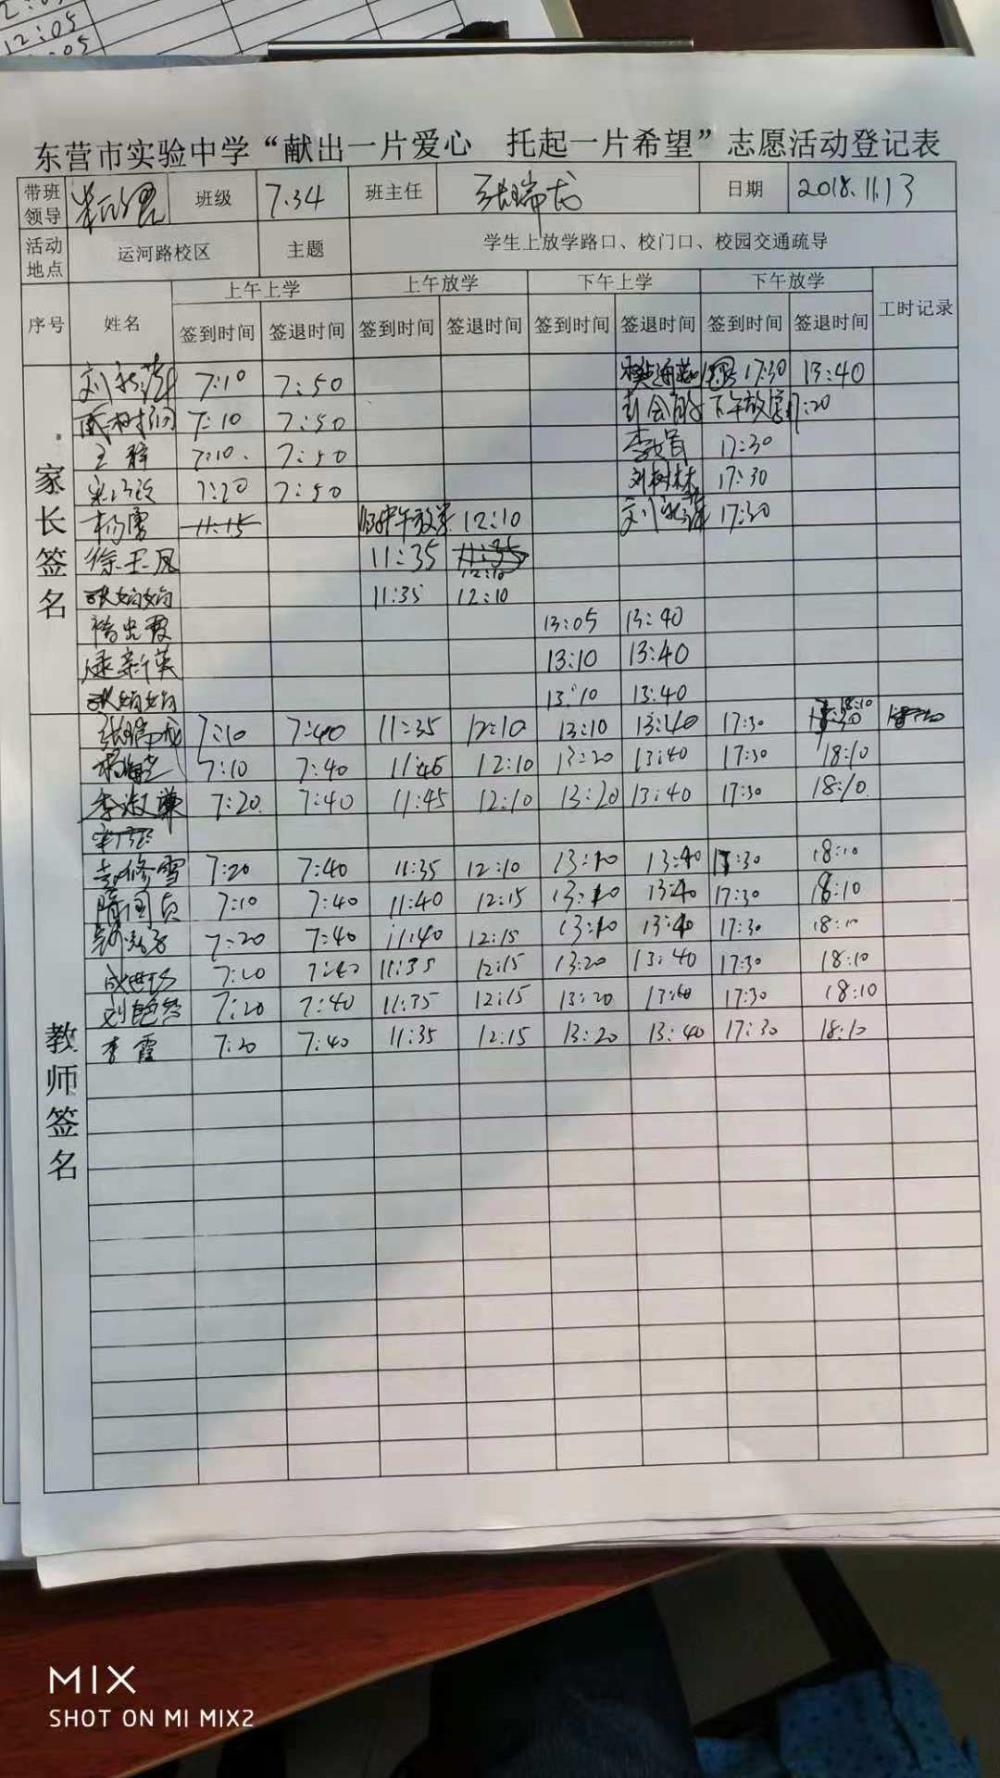 12:05
东营市实验中学“献出一片爱心 托起一片希望”志愿活动登记表
带班领导 班级 7.34 班主任 张瑞成 日期 2018.11.13
活动地点 运河路校区 主题 学生上放学路口、校门口、校园交通疏导
序号 姓名 上午上学 上午放学 下午上学 下午放学 工时记录
签到时间 签退时间 签到时间 签退时间 签到时间 签退时间 签到时间 签退时间
家长签名
7:10 7:50 17:30 13:40
7:10 7:50 下午放学 :20
王 7:10. 7:50 17:30
7:20 7:50 刘树林 17:30
杨雪 11:15 中午放学 12:10 17:30
徐玉凤 11:35 11:35 12:10
11:35 12:10
13:05 13:40
新英 13:10 13:40
13:10 13:40
教师签名
张瑞成 7:10 7:40 11:35 12:10 13:10 13:40 17:30 18:10
7:10 7:40 11:45 12:10 13:20 13:40 17:30 18:10
李 7:20 7:40 11:45 12:10 13:20 13:40 17:30 18:10
赵修雪 7:20 7:40 11:35 12:10 13:10 13:40 17:30 18:10
隋国贞 7:10 7:40 11:40 12:15 13:10 13:40 17:30 18:10
7:20 7:40 11:40 12:15 13:10 13:40 17:30 18:10
7:20 7:40 11:35 12:15 13:20 13:40 17:30 18:10
7:20 7:40 11:35 12:15 13:20 13:40 17:30 18:10
李霞 7:20 7:40 11:35 12:15 13:20 13:40 17:30 18:10
MIX
SHOT ON MI MIX2